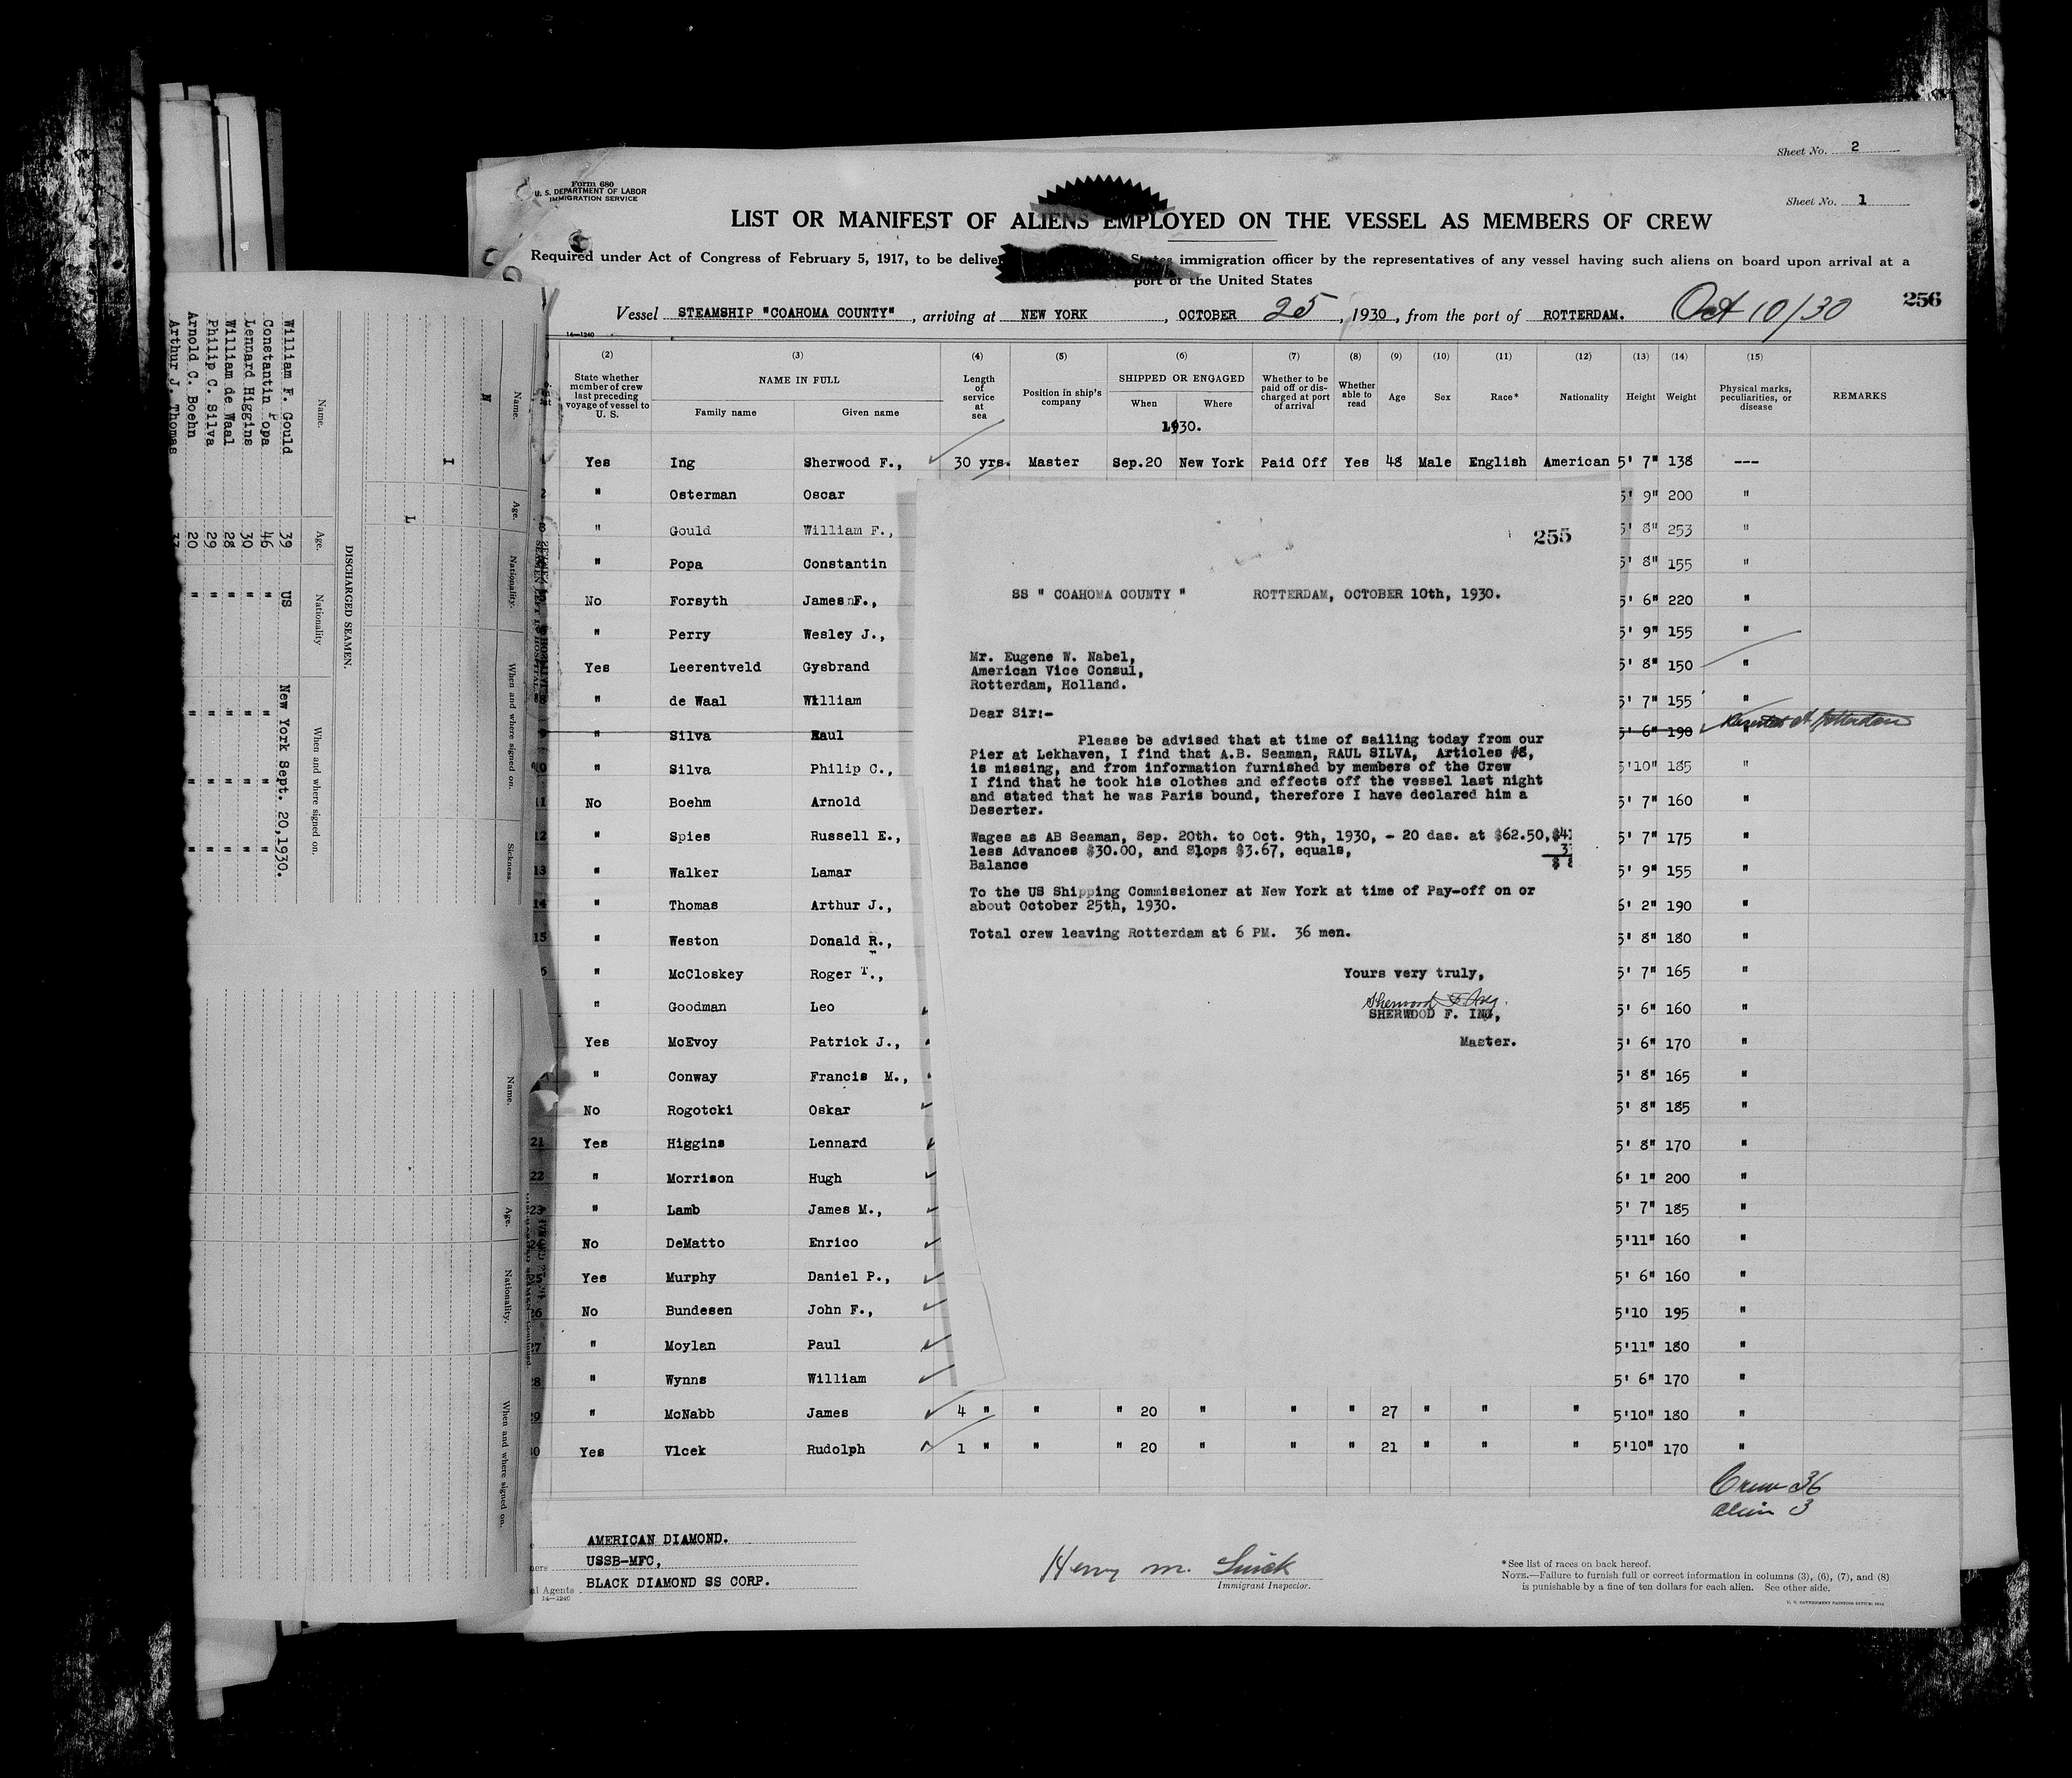 Sheet No. 2
Form 680
U. S. DEPARTMENT OF LABOR
IMMIGRATION SERVICE
Sheet No. 1
LIST OR MANIFEST OF ALIENS EMPLOYED ON THE VESSEL AS MEMBERS OF CREW
Required under Act of Congress of February 5, 1917, to be deliver States immigration officer by the representatives of any vessel having such aliens on board upon arrival at a
port of the United States
Vessel STEAMSHIP "COAHOMA COUNTY" , arriving at NEW YORK , OCTOBER 25 , 1930 , from the port of ROTTERDAM. Oct 10/30 256
14—1240
(2) (3) (4) (5) (6) (7) (8) (9) (10) (11) (12) (13) (14) (15)
State whether member of crew last preceding voyage of vessel to U. S. NAME IN FULL Length of service at sea Position in ship's company SHIPPED OR ENGAGED Whether to be paid off or discharged at port of arrival Whether able to read Age Sex Race* Nationality Height Weight Physical marks, peculiarities, or disease REMARKS
Family name Given name When Where
1930.
Yes Ing Sherwood F., 30 yrs. Master Sep.20 New York Paid Off Yes 48 Male English American 5' 7" 138 ---
2 " Osterman Oscar 5' 9" 200 "
" Gould William F., 5' 8" 253 "
" Popa Constantin 5' 8" 155 "
No Forsyth James F., 5' 6" 220 "
" Perry Wesley J., 5' 9" 155 "
Yes Leerentveld Gysbrand 5' 8" 150 "
" de Waal William 5' 7" 155 "
" Silva Raul 5' 6" 190 " Deserted at Rotterdam
" Silva Philip C., 5'10" 185 "
11 No Boehm Arnold 5' 7" 160 "
12 " Spies Russell E., 5' 7" 175 "
13 " Walker Lamar 5' 9" 155 "
14 " Thomas Arthur J., 6' 2" 190 "
15 " Weston Donald R., 5' 8" 180 "
" McCloskey Roger T., 5' 7" 165 "
" Goodman Leo 5' 6" 160 "
Yes McEvoy Patrick J., 5' 6" 170 "
" Conway Francis M., 5' 8" 165 "
No Rogotcki Oskar 5' 8" 185 "
21 Yes Higgins Lennard 5' 8" 170 "
22 " Morrison Hugh 6' 1" 200 "
23 " Lamb James M., 5' 7" 185 "
No DeMatto Enrico 5'11" 160 "
25 Yes Murphy Daniel P., 5' 6" 160 "
26 No Bundesen John F., 5'10 195 "
27 " Moylan Paul 5'11" 180 "
28 " Wynns William 5' 6" 170 "
29 " McNabb James 4 " " " 20 " " " 27 " " " 5'10" 180 "
30 Yes Vlcek Rudolph 1 " " " 20 " " " 21 " " " 5'10" 170 "
Crew 36
Alien 3
AMERICAN DIAMOND.
USSB-MFC,
Agents BLACK DIAMOND SS CORP.
14—1240
Immigrant Inspector.
*See list of races on back hereof.
NOTE.—Failure to furnish full or correct information in columns (3), (6), (7), and (8)
is punishable by a fine of ten dollars for each alien. See other side.
U. S. GOVERNMENT PRINTING OFFICE
255
SS " COAHOMA COUNTY " ROTTERDAM, OCTOBER 10th, 1930.
Mr. Eugene W. Nabel,
American Vice Consul,
Rotterdam, Holland.
Dear Sir:-
Please be advised that at time of sailing today from our
Pier at Lekhaven, I find that A.B. Seaman, RAUL SILVA, Articles #8,
is missing, and from information furnished by members of the Crew
I find that he took his clothes and effects off the vessel last night
and stated that he was Paris bound, therefore I have declared him a
Deserter.
Wages as AB Seaman, Sep. 20th. to Oct. 9th, 1930, - 20 das. at $62.50,$4
less Advances $30.00, and Slops $3.67, equals, 3
Balance $
To the US Shipping Commissioner at New York at time of Pay-off on or
about October 25th, 1930.
Total crew leaving Rotterdam at 6 PM. 36 men.
Yours very truly,
Sherwood F. Ing.
SHERWOOD F. ING,
Master.
Name. Age. Nationality. When and where signed on. Sickness.
DISCHARGED SEAMEN.
Name. Age. Nationality When and where signed on.
William F. Gould 39 US New York Sept. 20,1930.
Constantin Popa 46 " " " "
Lennard Higgins 30 " " " "
William de Waal 28 " " " "
Philip C. Silva 29 " " " "
Arnold C. Boehn 20 " " " "
Arthur J. Thomas
Name. Age. Nationality. When and where signed on.